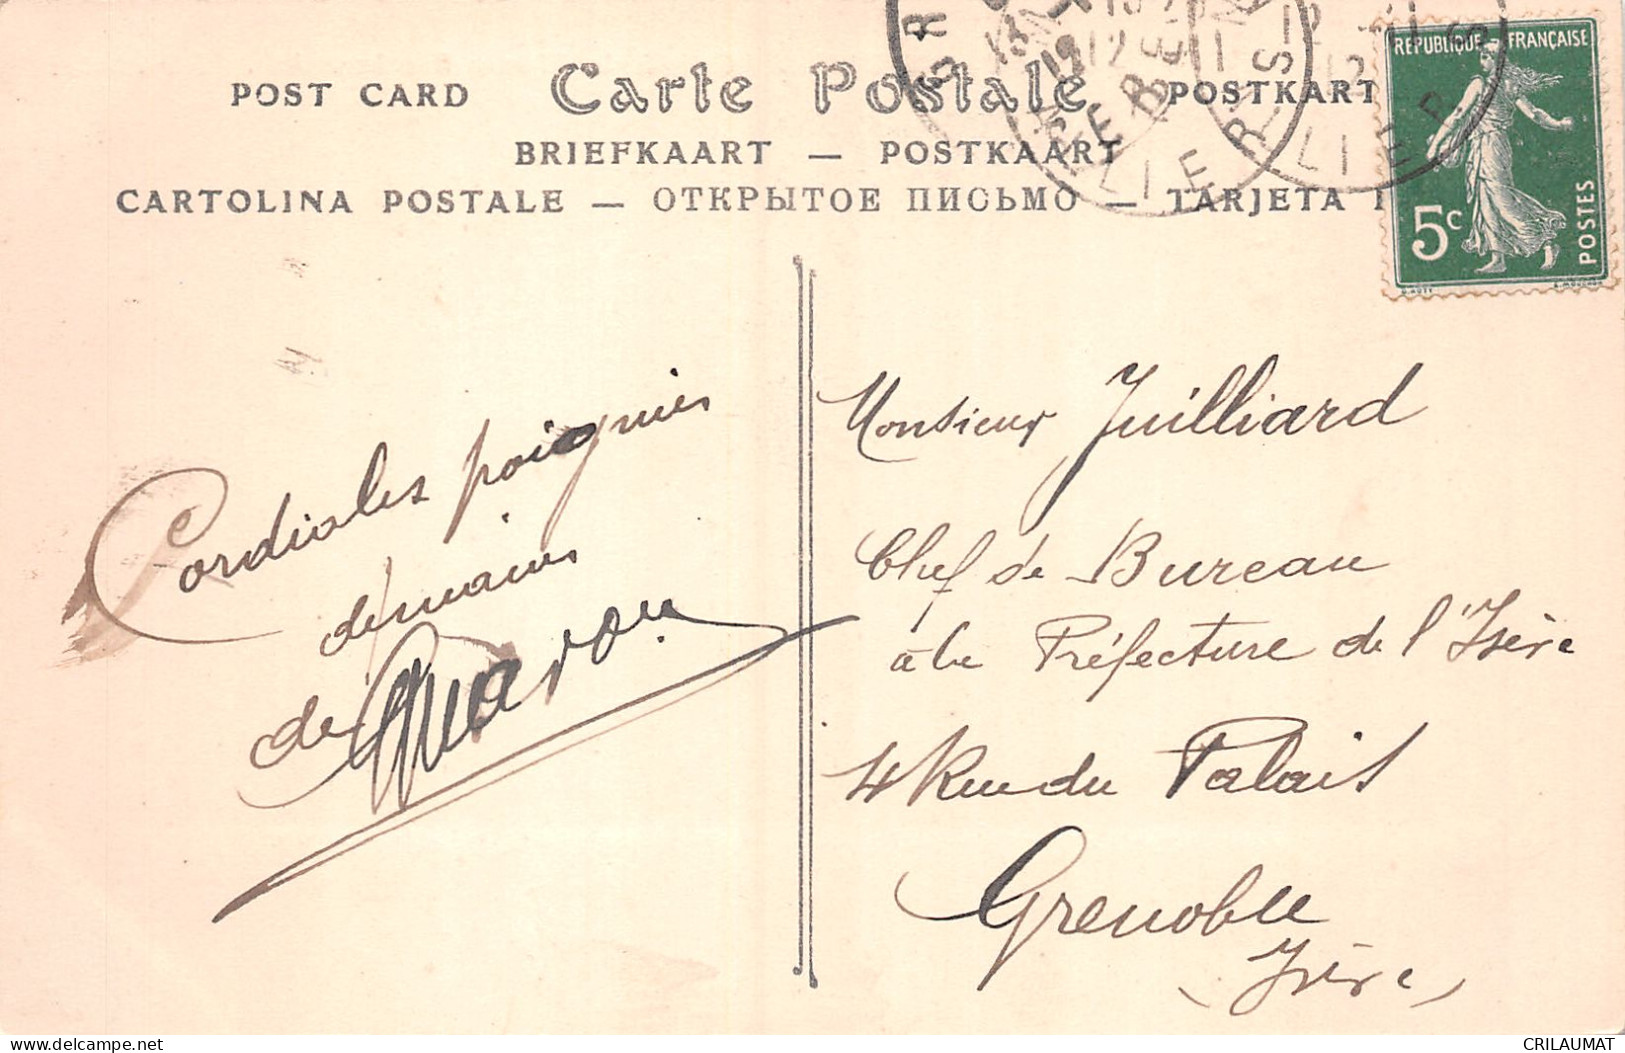 POST CARD Carte Postale POSTKART
BRIEFKAART — POSTKAART
CARTOLINA POSTALE — ОТКРЫТОЕ ПИСЬМО — TARJETA
REPUBLIQUE FRANÇAISE
5c
POSTES
Cordiales poignées
de mains
de
Monsieur Juilliard
Chef de Bureau
à la Préfecture de l'Isère
4 Rue du Palais
Grenoble
(Isère)
CRILAUMAT